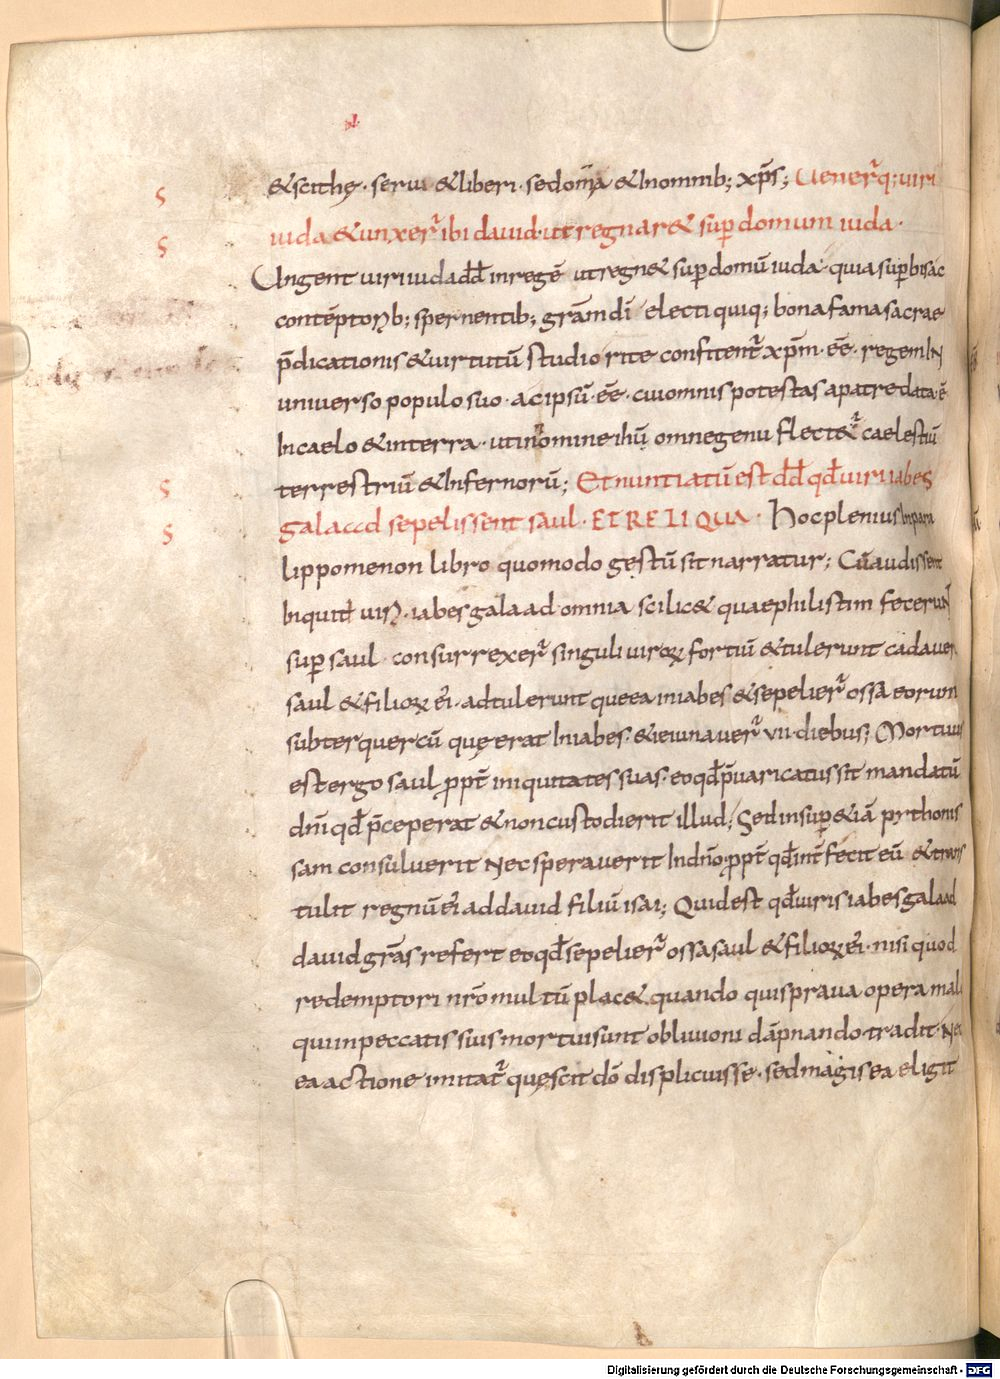 &scithę · serui &liberi · sedom̄a &Inomnib; xp̄s; Uener̄q; uiri
iuda &unxer̄ ibi dauid · ut regnar& sup̄ domum iuda ·
Ungent uiri iuda dd̄ in regē ut regn& sup̄ domū iuda · quia sup̄bis ac
contēptorib; spernentib; grām dī electi quiq; bona fama sacrae
p̄dicationis &uirtutū studio rite confitent̄ xp̄m · ēē · regem IN
uniuerso populo suo · ac ipsū · ēē · cui omnis potestas a patre data · ē
In caelo &interra · ut in nomine ihū omne genu flect&̄ caelestiū
terrestriū &Infernorū; Et nuntiatū est dd̄ qd̄ uiri iabes
galaad sepelissent saul · ET RELIQUA · Hoc plenius In para
lippomenon libro quomodo gestū sit narratur; Cū audissent
Inquit uiri · iabes galaad · omnia scilic& quae philistim fecerunt
sup̄ saul · consurrexer̄ singuli uiroꝝ fortiū &tulerunt cadauer
saul &filioꝝ ei · adtulerunt queea in iabes &sepelier̄ ossa eorum
subter quercū quę erat In iabes · &ieiunauer̄ vii · diebus; Mortuus
est ergo saul ꝓpt̄ iniquitates suas · eo qd̄ p̄uaricatus sit mandatū
dn̄i qd̄ p̄ceperat &non custodierit illud; Sed insup̄ &iā pythonis
sam consuluerit Nec sperauerit In dn̄o · ꝓpt̄ qd̄ int̄fecit eū &trans
tulit regnū ei ad dauid filiū isai; Quid est qd̄ uiris iabes galaad
dauid grās refert eo qd̄ sepelier̄ ossa saul &filioꝝ ei · nisi quod
redemptori nr̄o multū plac& quando quis praua opera mal
qui in peccatis suis mortui sunt obliuioni dāpnando tradit · Nec
ea actione imitat̄ quę scit dō displicuisse · sed magis ea eligit
S
S
S
S
Digitalisierung gefördert durch die Deutsche Forschungsgemeinschaft - DFG